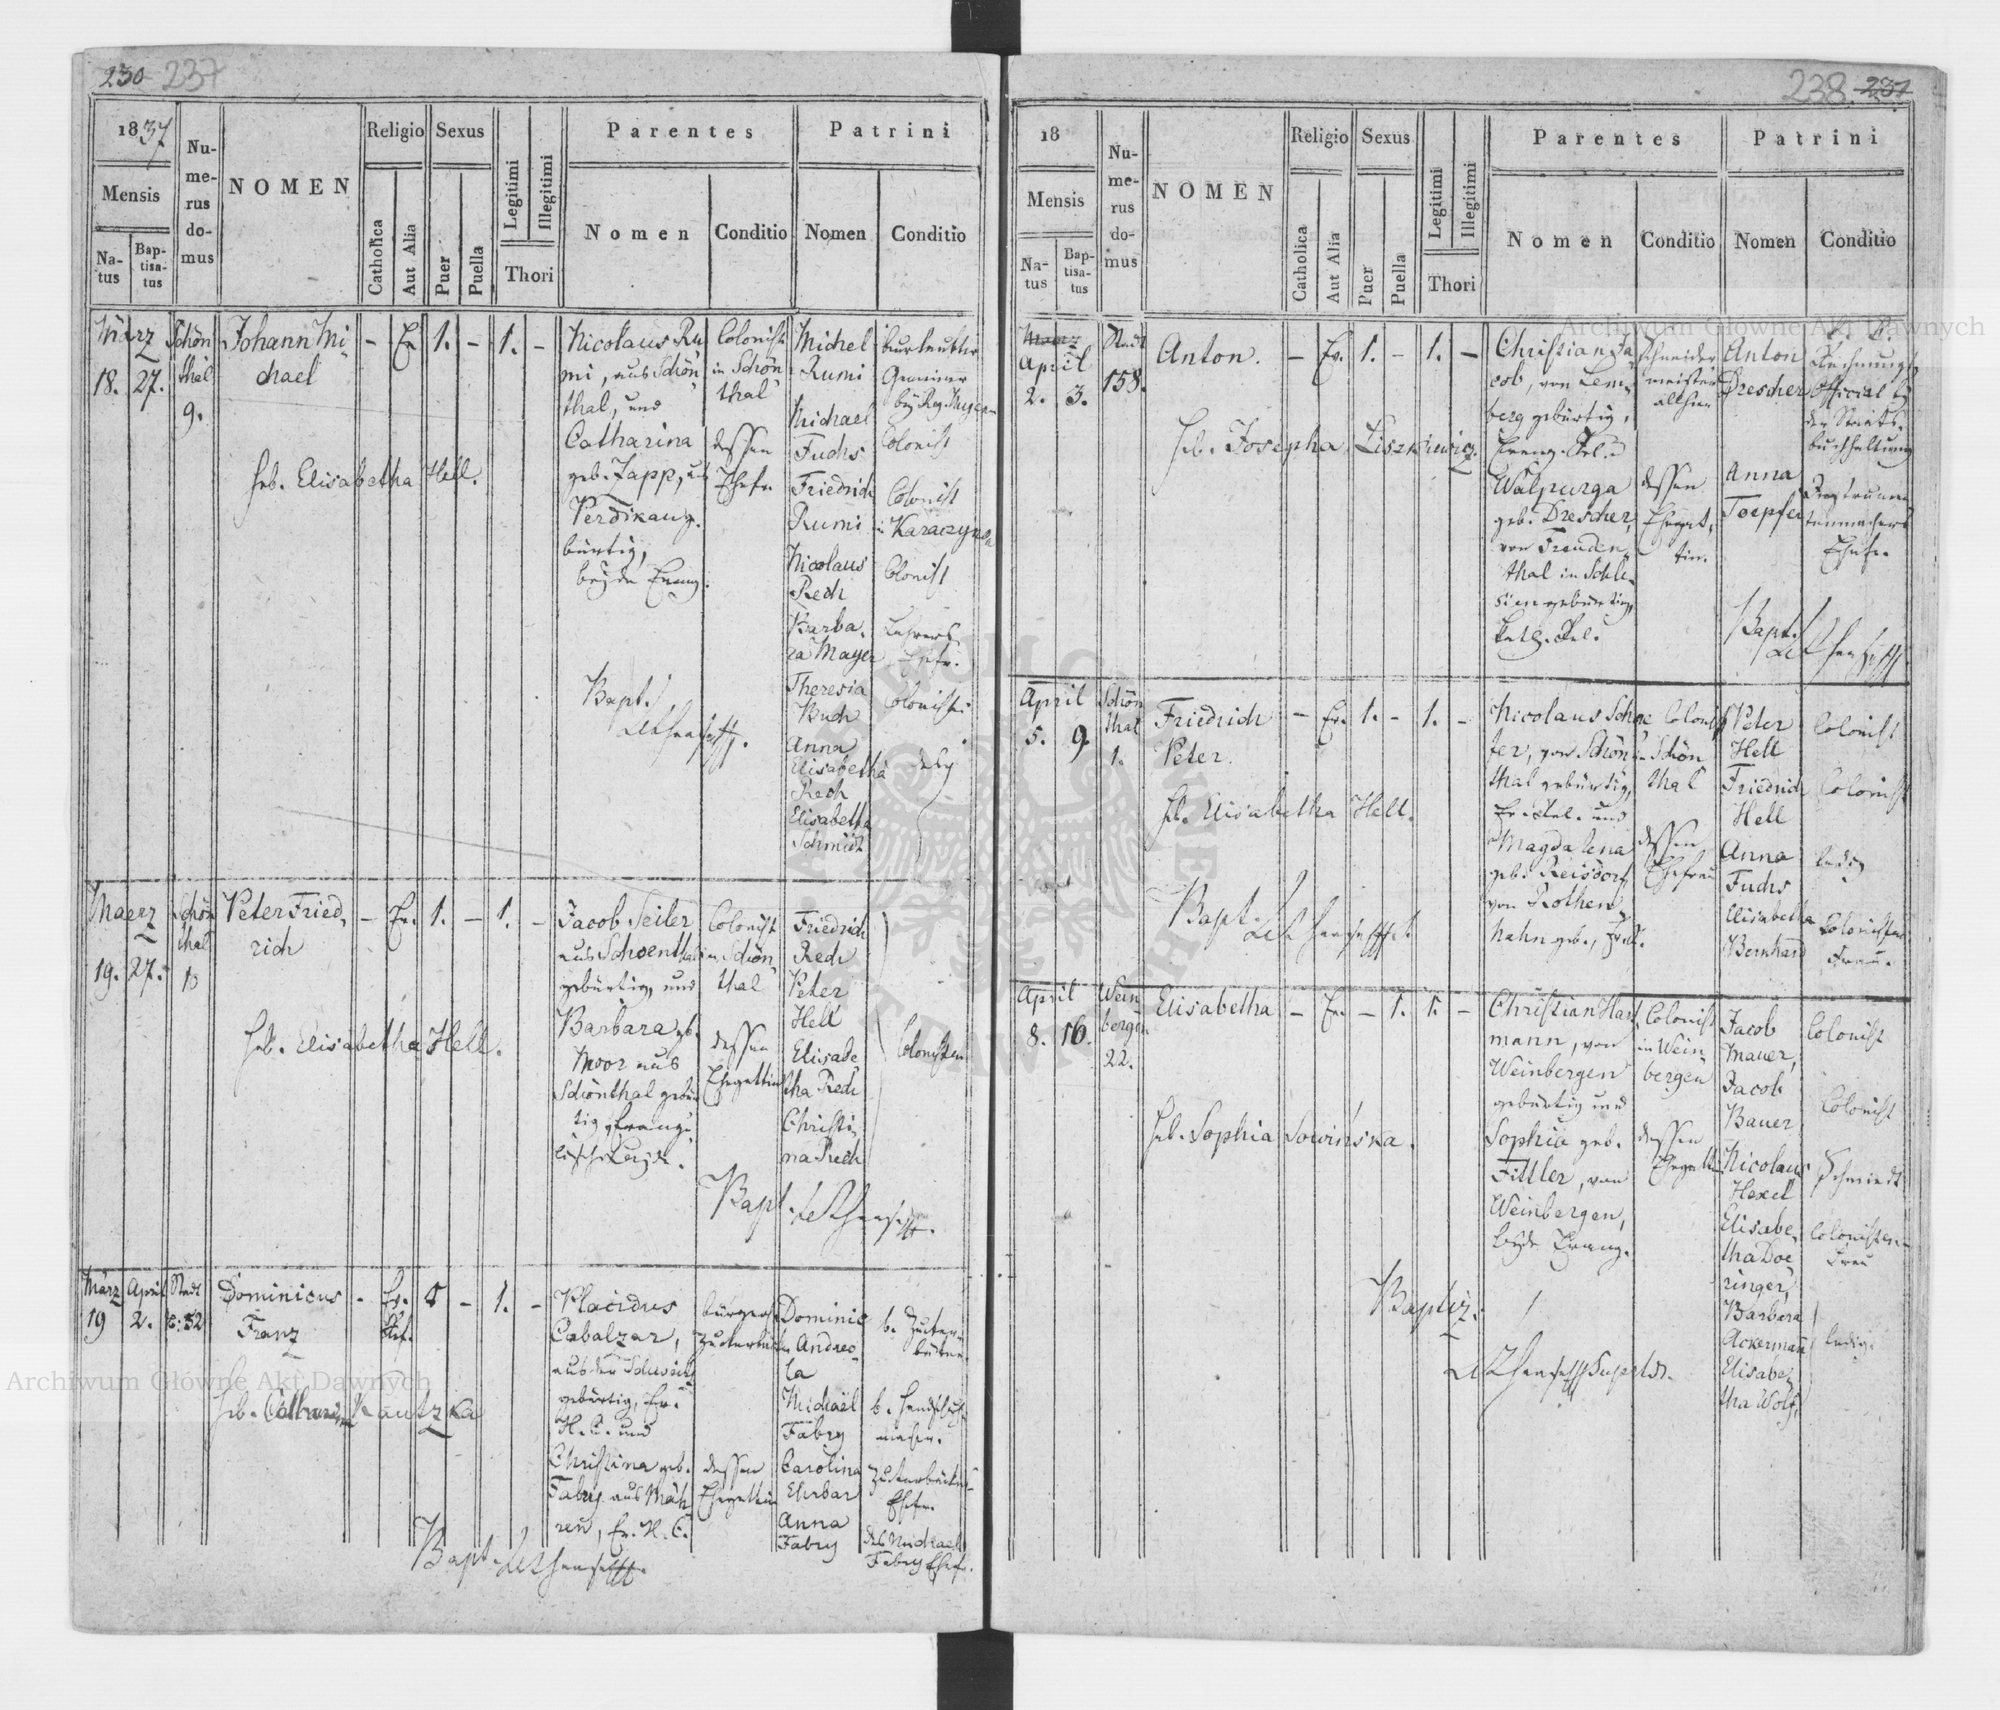 230 237
1837
Mensis
Natus
Baptisatus
Numerus domus
NOMEN
Religio
Catholica
Aut Alia
Sexus
Puer
Puella
Legitimi
Illegitimi
Thori
Parentes
Nomen
Conditio
Patrini
Nomen
Conditio
März
18. 27.
Schön
thal
9.
Johann Mi-
chael
- Ev. 1. - 1. -
Heb. Elisabetha Hell.
Nicolaus Ru
mi, aus Schön
thal, und
Catharina
geb. Zapp, aus
bürtig,
beyde Evang.
Colonist
in Schön
thal
dessen
Ehefr.
Michel
Rumi
Michael
Fuchs
Friedrich
Rumi
Nicolaus
Rech
Barba-
ra Mayer
Theresia
Buch
Anna
Elisabetha
Rech
Elisabetha
Schmidt
Colonist
Colonist
Colonist
Lehrers
Ehefr.
Bapt.
Maerz
19. 27.
Schön
thal
Peter Fried-
rich
- Ev. 1. - 1. -
Heb. Elisabetha Hell.
Jacob Seiler
aus Schoenthal
gebürtig, und
Barbara gb.
Moor aus
Schönthal gebür
tig, Evange
Colonist
in Schön
thal
dessen
Ehegattin
Friedrich
Rech
Peter
Hell
Elisabe
tha Rech
Christi
na Rech
Colonisten
Bapt.
März
19
April
2.
Stadt
52
Dominicus
Franz
- Ev. 1 - 1. -
Ref.
Heb. Kautzka
Placidus
Cabalzar,
aus der Schweiz
gebürtig, Ev.
H. C. und
Christina geb.
Fabry aus Mäh
ren, Ev. H. C.
bürgerl.
dessen
Ehegattin
Dominic
Andreo
la
Michael
Fabry
Carolina
Ehrbar
Anna
Fabry
b. Zucker
bäcker
b. Handschuh
macher.
Zuckerbäckers
Ehefr.
des Michael
Fabry Ehefr.
Bapt.
238 237
18
Mensis
Natus
Baptisatus
Numerus domus
NOMEN
Religio
Catholica
Aut Alia
Sexus
Puer
Puella
Legitimi
Illegitimi
Thori
Parentes
Nomen
Conditio
Patrini
Nomen
Conditio
Maerz
April
2. 3.
Stadt
158.
Anton.
- Ev. 1. - 1. -
Heb. Josepha Liszkiewicz.
Christian Ja
cob, von Lem-
berg gebürtig,
Evang. Rel.
Walpurga
geb. Drescher,
von Freuden
thal in Schle-
sien gebürtig,
kath. Rel.
Schneider
meister
allhier
dessen
Ehegat-
tin.
Anton
Drescher
Anna
Toepfer
k. k.
Rechnungs
Official bey
der Staats-
buchhaltung
Instrumen
tenmachers
Ehefr.
Bapt.
April
5. 9.
Schön
thal
1.
Friedrich
Peter.
- Ev. 1. - 1. -
Heb. Elisabetha Hell.
Nicolaus Schae
fer, von Schön
thal gebürtig,
Ev. Rel. und
Magdalena
geb. Reisdorf
von Rothen
hahn geb.,
Colonist
in Schön
thal
dessen
Ehefrau
Peter
Hell
Friedrich
Hell
Anna
Fuchs
Elisabetha
Bernhard
Colonist
Colonist
ledig
Colonisten
Frau.
Bapt.
April
8. 16.
Wein
bergen
22.
Elisabetha
- Ev. - 1. 1. -
Heb. Sophia Sowinska.
Christian Hart
mann, von
Weinbergen
gebürtig und
Sophia geb.
Fittler, von
Weinbergen,
beyde Evang.
Colonist
in Wein-
bergen
dessen
Ehegattin
Jacob
Mauer,
Jacob
Bauer
Nicolaus
Hexel
Elisabe-
tha Doe
ringer,
Barbara
Ackermann
Elisabe
tha Wolf,
Colonist
Colonist
Schmiedt
Colonisten
Frau
ledig.
Baptiz.
Archiwum Główne Akt Dawnych
Archiwum Główne Akt Dawnych